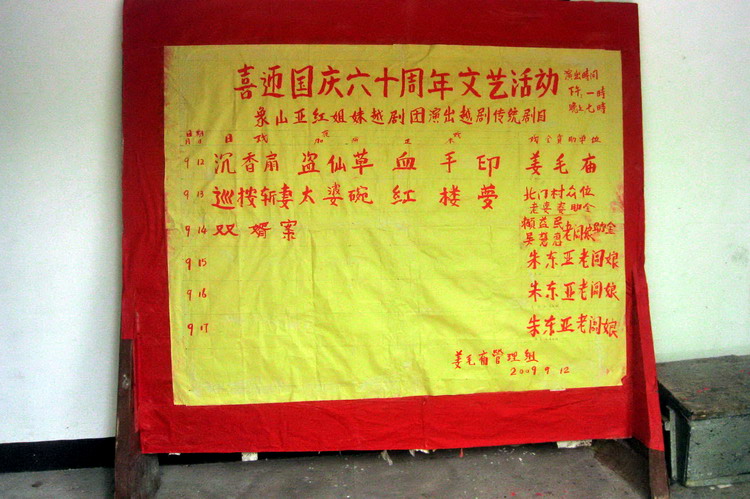 喜迎国庆六十周年文艺活动 演出时间
下午一時
晚上七時
象山亚红姐妹越剧团演出越剧传统剧目
日期 日戏 加演 正 夜戏 戏金資助单位
9 12 沉香扇 盗仙草 血手印 姜毛庙
9 13 巡按斩妻 太婆碗 红楼夢 北门村众位
老婆婆助金
9 14 双婿案 赖益民
吴 老闆娘助金
9 15 朱东亚老闆娘
9 16 朱东亚老闆娘
9 17 朱东亚老闆娘
姜毛庙管理组
2009 9 12